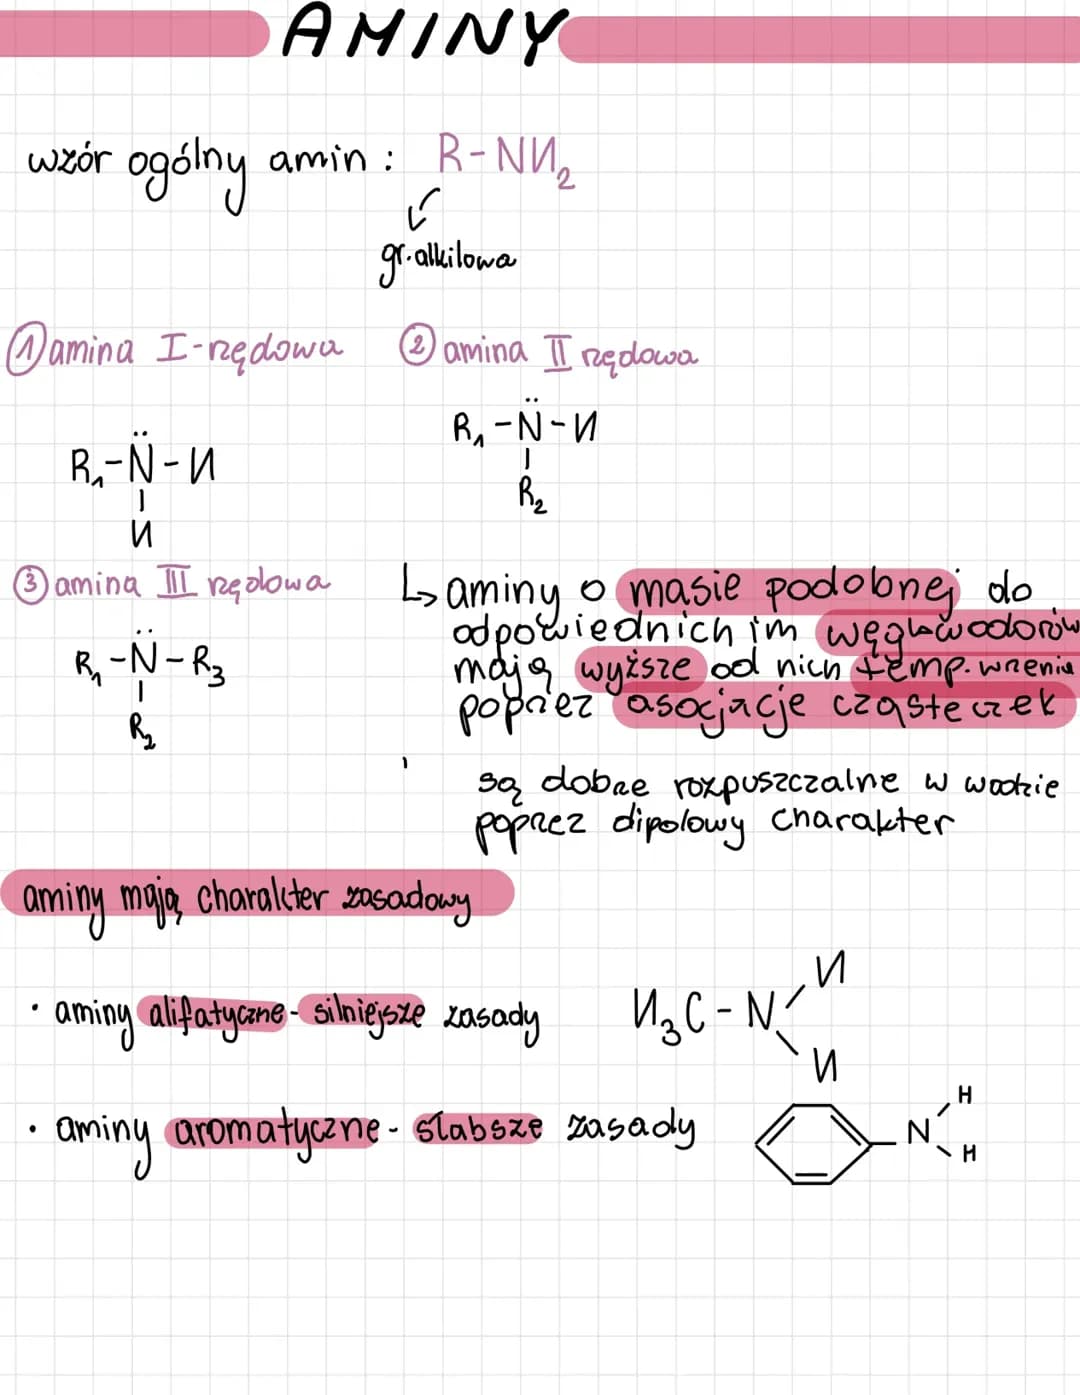 AMINY
wzór ogólny amin: R-NH₂
gr. alkilowa
① amina I-rzędowa
② amina II rzędowa
R₁-N̈-H
R₁-N̈-H
R₂
H
③ amina III rzędowa
R₁-N̈-R₃
R₂
↳ aminy o masie podobnej do
odpowiednich im węglowodorów
mają wyższe od nich temp. wrzenia
poprzez asocjacje cząsteczek
są dobrze rozpuszczalne w wodzie
poprzez dipolowy charakter
aminy mają charakter zasadowy
• aminy alifatyczne - silniejsze zasady
H₃C-N
H
H
• aminy aromatyczne - słabsze zasady
N
H
H